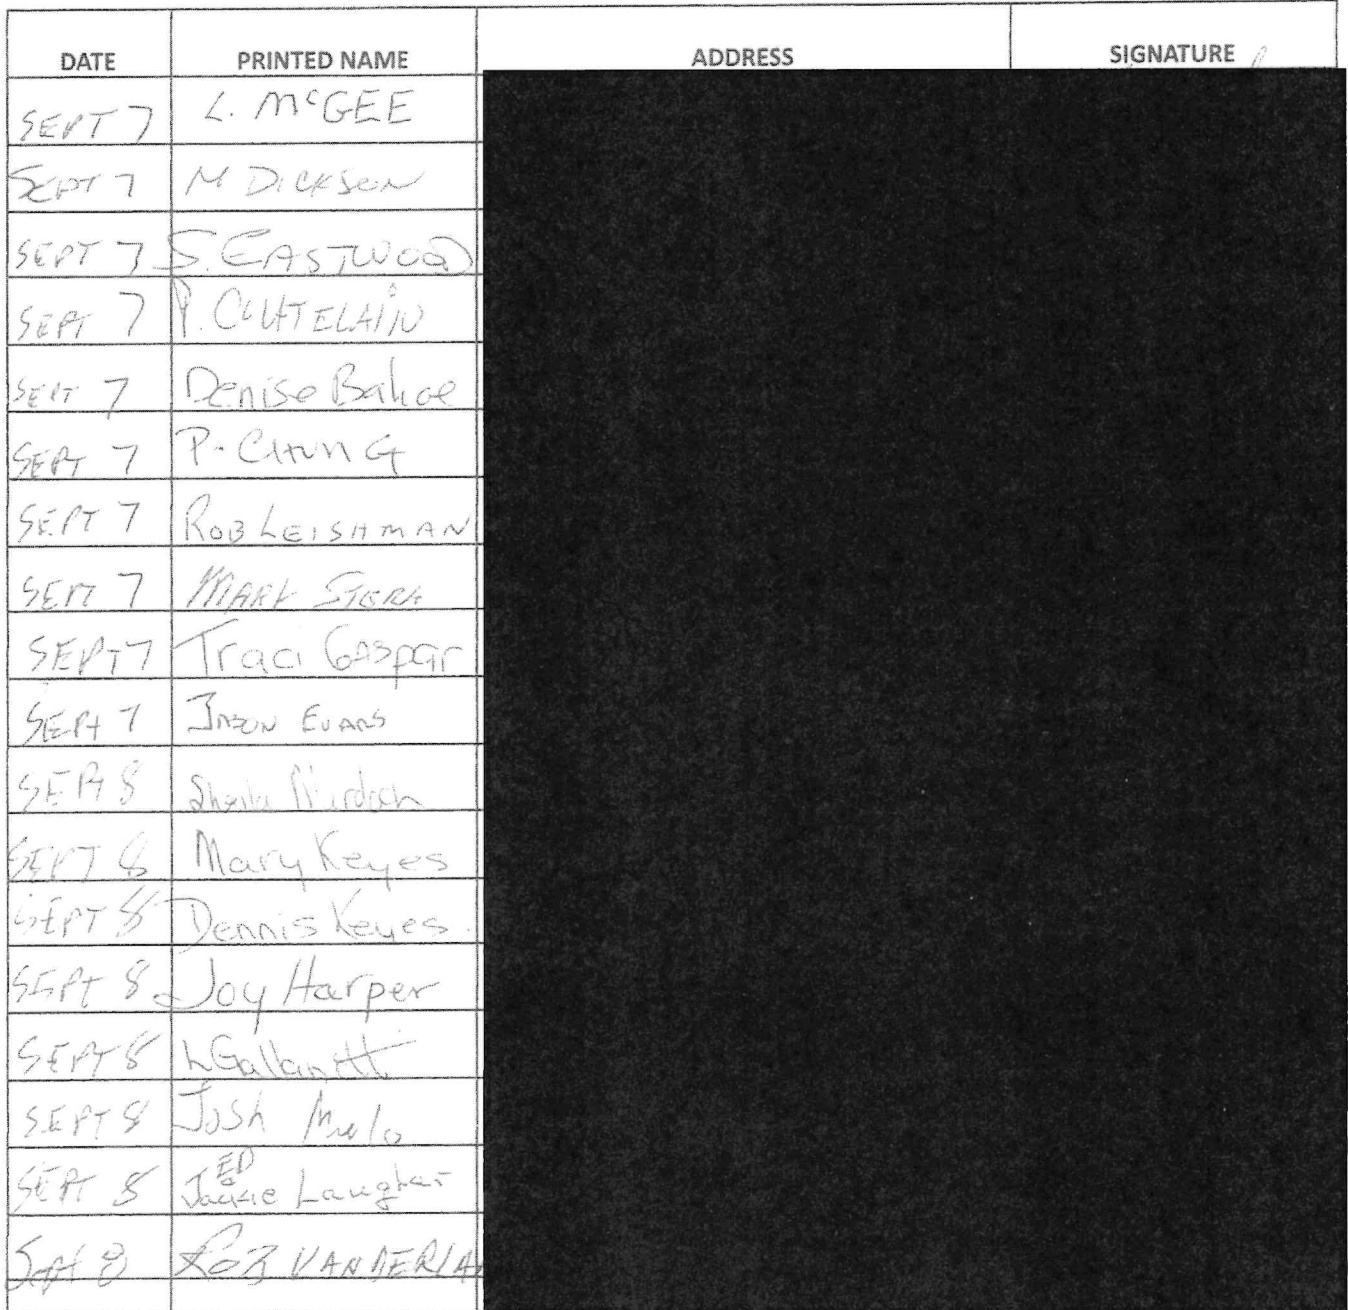 DATE PRINTED NAME ADDRESS SIGNATURE
SEPT 7 L. McGEE
SEPT 7 M DICKSON
SEPT 7 S. EASTWOOD
SEPT 7 P.
SEPT 7 Denise
SEPT 7 P. CHUNG
SEPT 7 ROB LEISHMAN
SEPT 7 MARK
SEPT 7 Traci GASpar
SEPT 7 JASON EVANS
SEPT 8 Sheila Murdoch
SEPT 8 Mary Keyes
SEPT 8 Dennis Keyes.
SEPT 8 Joy Harper
SEPT 8 L
SEPT 8 Josh
ED
SEPT 8 Jackie
Sept 8 ROB